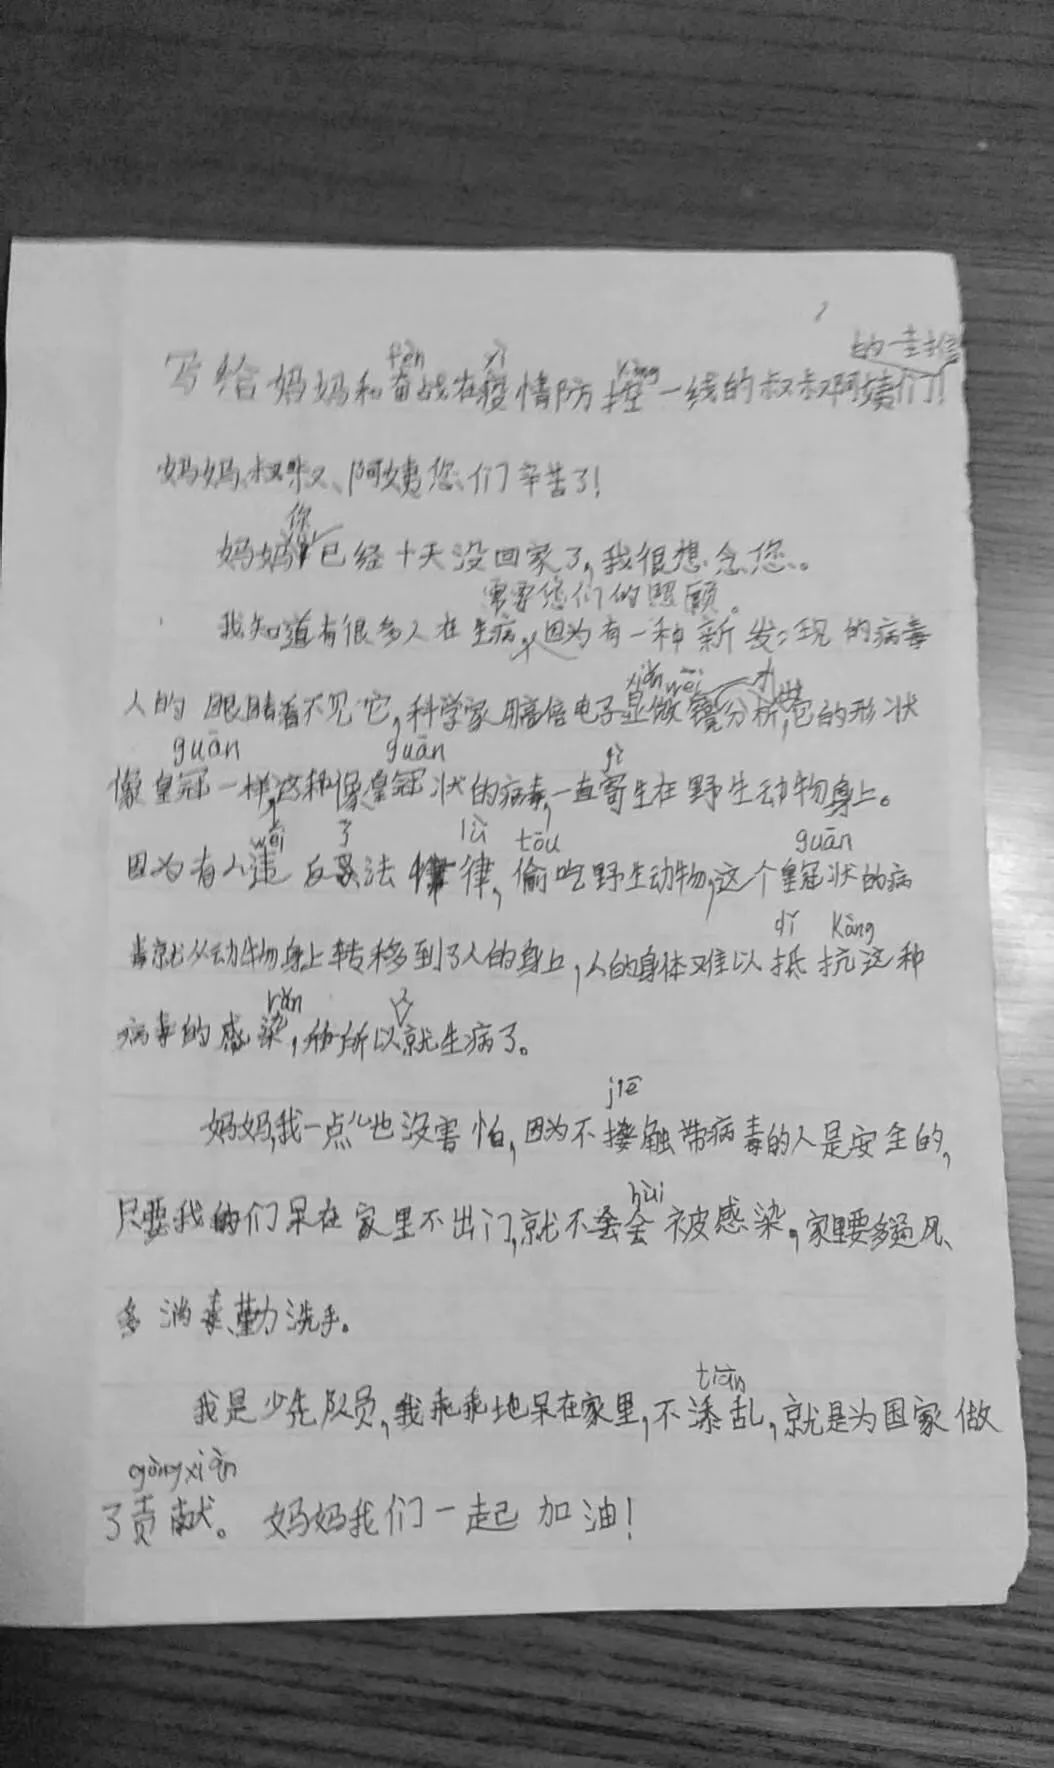 的一封
fèn yì kòng
写给妈妈和奋战在疫情防控一线的叔叔啊姨们!
妈妈、叔叔、阿姨您们辛苦了!
你
妈妈已经十天没回家了,我很想念您。
需要您们的照顾。
我知道有很多人在生病,因为有一种新发现的病毒
xiǎn wēi
人的眼睛看不见它,科学家用高倍电子显微镜分析,它的形状
guān guān jì
像皇冠一样,这种像皇冠状的病毒,一直寄生在野生动物身上。
wéi 了 lǜ tōu guān
因为有人违反法律,偷吃野生动物,这个皇冠状的病
dǐ kàng
毒就从动物身上转移到了人的身上,人的身体难以抵抗这种
rǎn
病毒的感染,所以就生病了。
jiē
妈妈,我一点儿也没害怕,因为不接触带病毒的人是安全的,
hùi
只要我们呆在家里不出门,就不会被感染,家里要多通风、
多消毒、勤洗手。
tiān
我是少先队员,我乖乖地呆在家里,不添乱,就是为国家做
gòng xiàn
了贡献。妈妈我们一起加油!